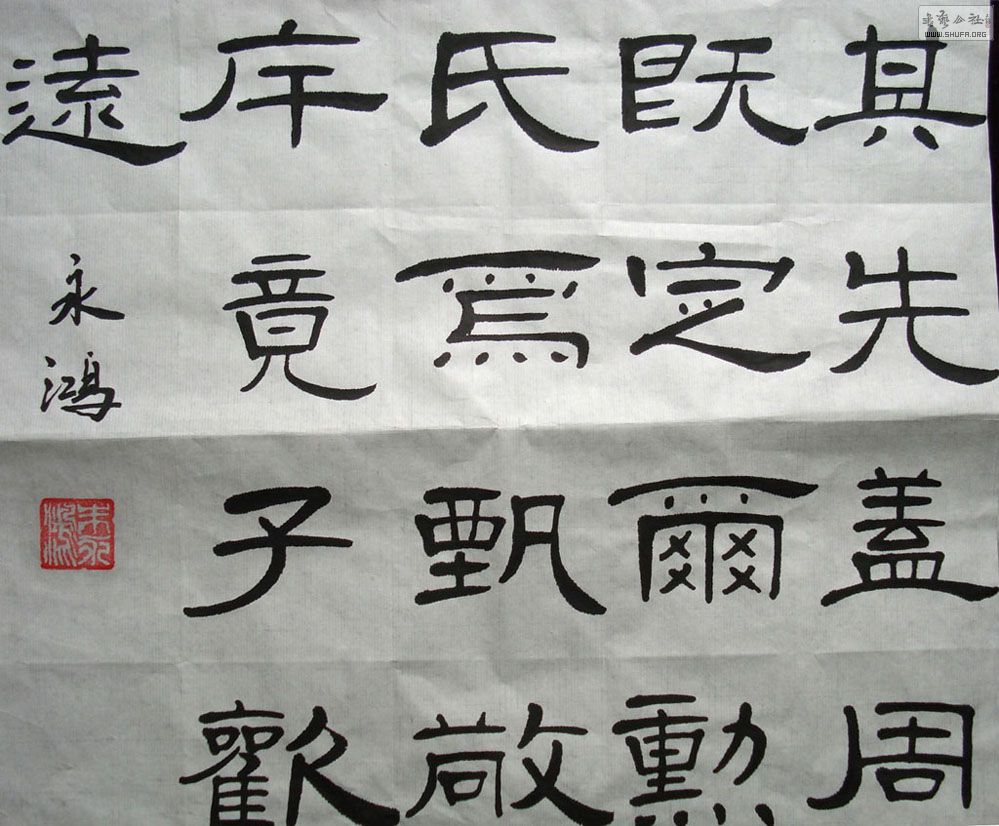 其先盖周
既定爾勳
氏焉甄敞
斥竟子歡
遠
永鴻
書藝公社
WWW.SHUFA.ORG